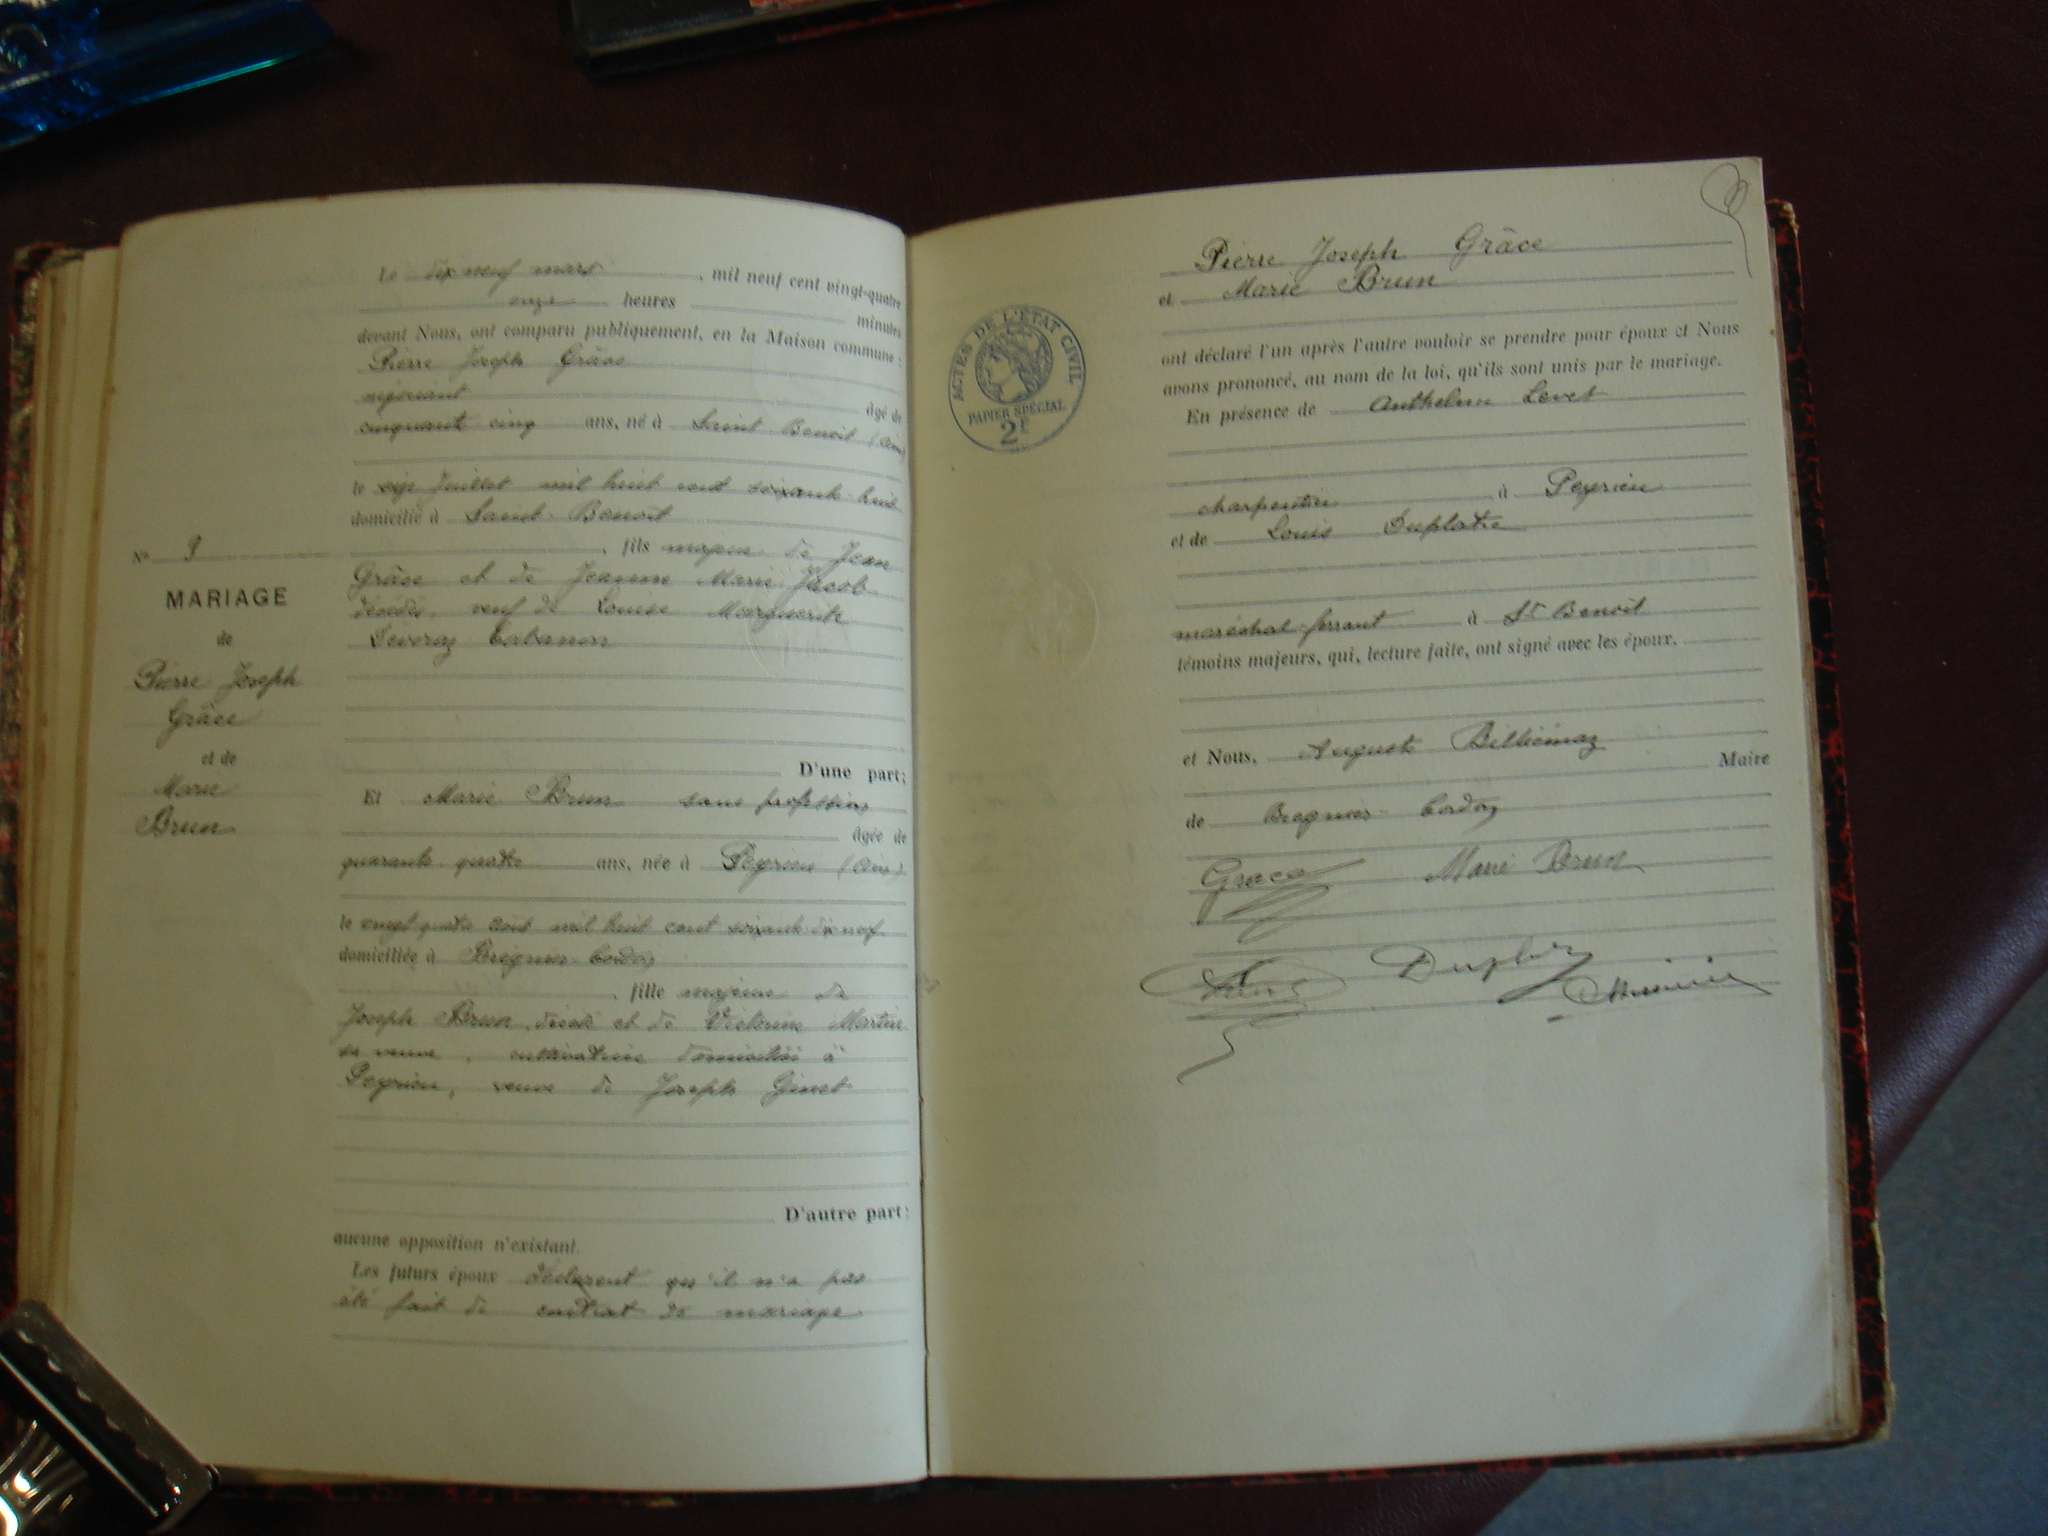 Le dix neuf mars , mil neuf cent vingt-quatre
onze heures minutes
devant Nous, ont comparu publiquement, en la Maison commune :
Pierre Joseph Grâce
négociant âgé de
cinquante cinq ans, né à Saint Benoît (Ain)
le Juillet mil huit cent soixante huit
domicilié à Saint-Benoît
, fils majeur de Jean
Grâce et de Jeanne Marie Jacob
décédés, veuf de Louise Marguerite
Cabanon
N°
MARIAGE
de
Pierre Joseph
Grâce
et de
Marie
Brun
D'une part;
Et Marie Brun sans profession
âgée de
quarante quatre ans, née à Peyrieu (Ain)
le vingt quatre août mil huit cent soixante dix neuf
domiciliée à Brégnier-Cordon
, fille majeure de
Joseph Brun, décédé et de Victorine Martin
sa veuve, cultivatrice domiciliée à
Peyrieu, veuve de Joseph Ginet
D'autre part;
aucune opposition n'existant.
Les futurs époux déclarent qu'il n'a pas
été fait de contrat de mariage
Pierre Joseph Grâce
et Marie Brun
ACTES DE L'ÉTAT CIVIL
PAPIER SPÉCIAL
2F
ont déclaré l'un après l'autre vouloir se prendre pour époux et Nous
avons prononcé, au nom de la loi, qu'ils sont unis par le mariage.
En présence de Anthelme Levet
charpentier à Peyrieu
et de Louis Duplatre
maréchal-ferrant à St Benoît
témoins majeurs, qui, lecture faite, ont signé avec les époux.
et Nous, Auguste Billiémaz
Maire
de Brégnier-Cordon
Grâce Marie Brun